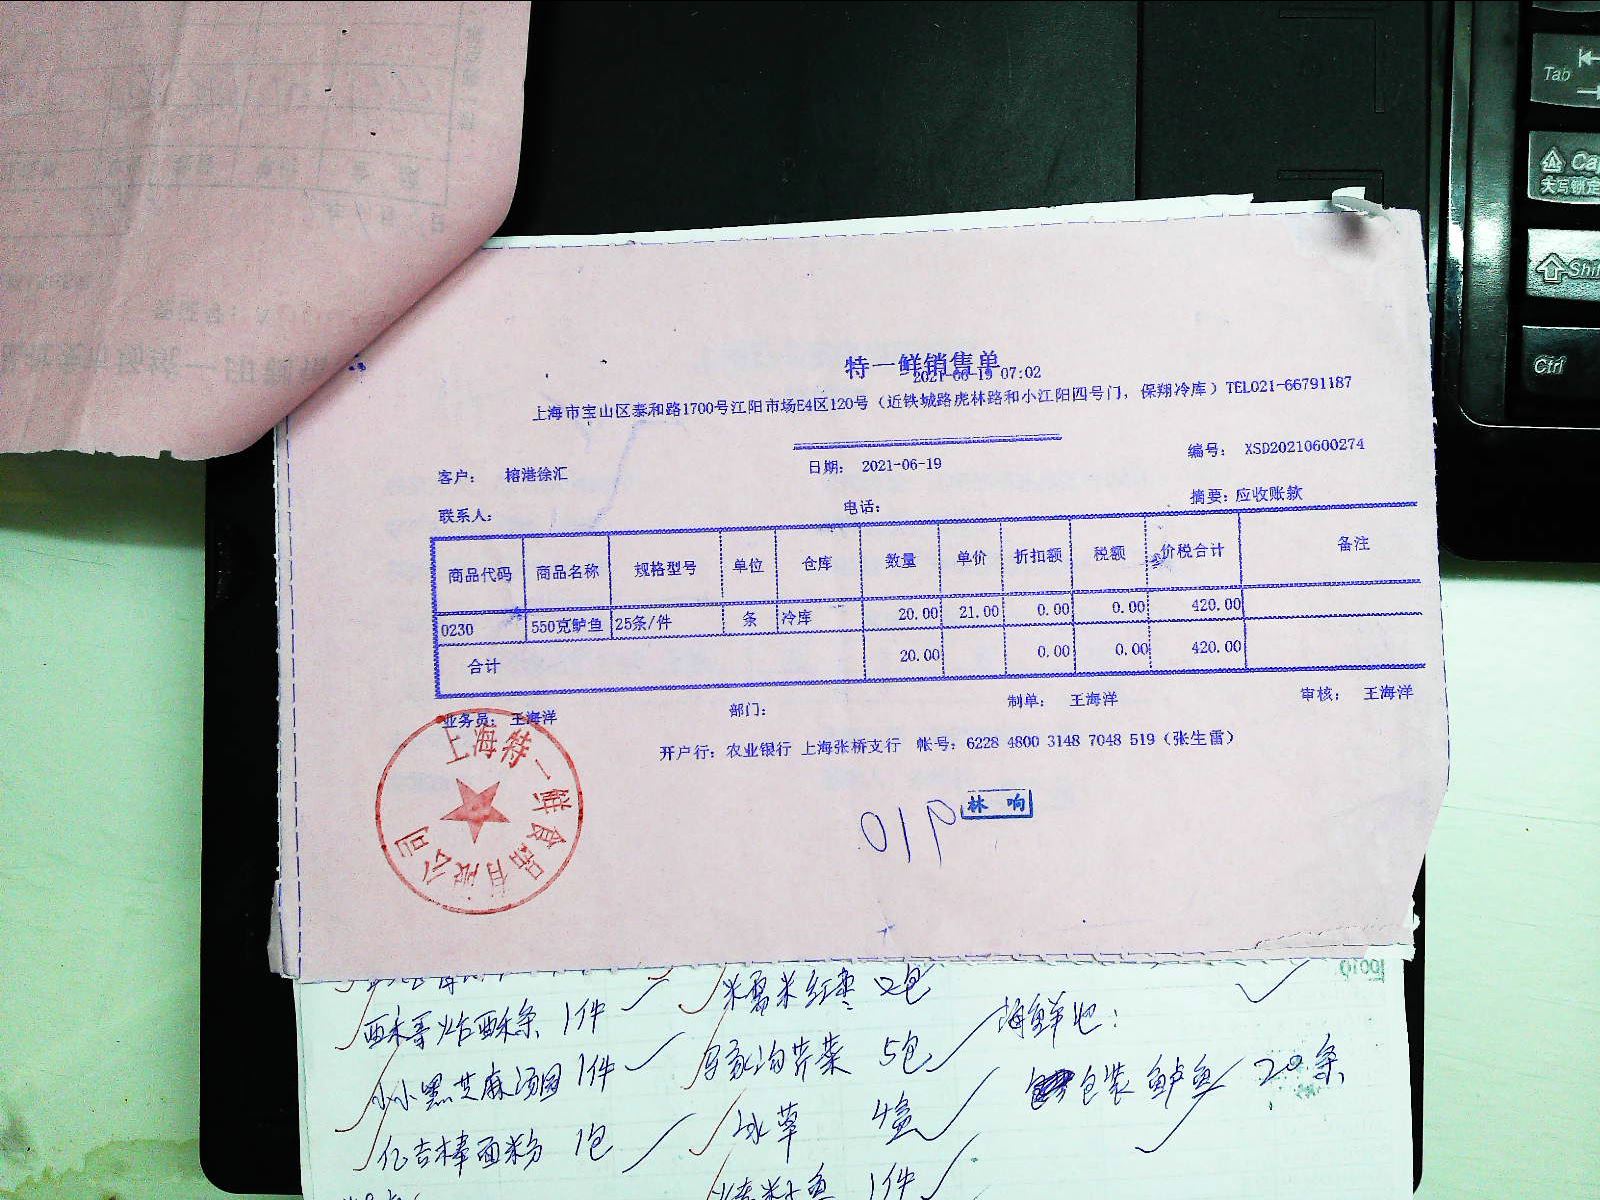 Tab
Cap
大写锁定
Shif
Ctrl
特一鲜销售单
2021-06-19 07:02
上海市宝山区泰和路1700号江阳市场E4区120号（近铁城路虎林路和小江阳四号门，保翔冷库）TEL021-66791187
客户： 榕港徐汇 日期： 2021-06-19 编号： XSD20210600274
联系人： 电话： 摘要：应收账款
商品代码 商品名称 规格型号 单位 仓库 数量 单价 折扣额 税额 价税合计 备注
0230 550克鲈鱼 25条/件 条 冷库 20.00 21.00 0.00 0.00 420.00
合计 20.00 0.00 0.00 420.00
业务员： 王海洋 部门： 制单： 王海洋 审核： 王海洋
开户行：农业银行 上海张桥支行 帐号：6228 4800 3148 7048 519（张生雷）
上海特一鲜食品有限公司
019
林响
1件 红枣 2包
小小黑芝麻汤圆 1件 芹菜 5包 海鲜池：
亿吉棒面粉 1包 冰草 4盒 包装鲈鱼 20条
1件